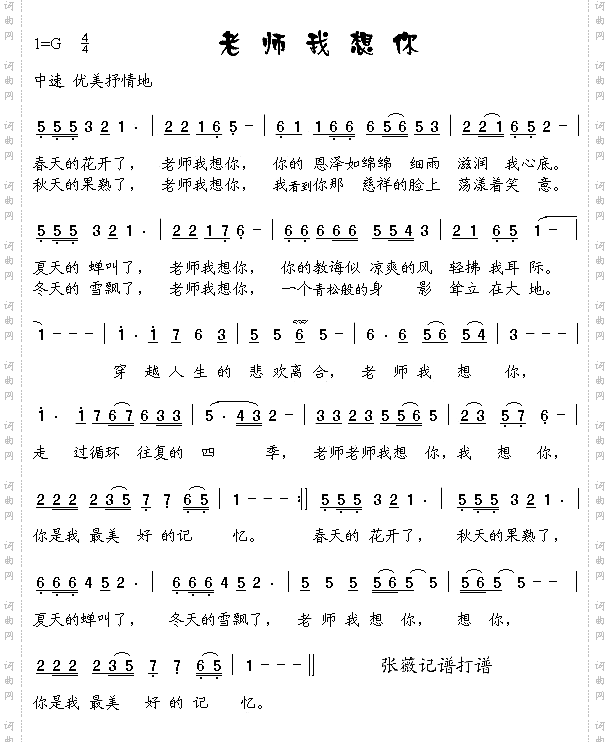 老师我想你
1=G 4/4
中速 优美抒情地
5 5 5 3 2 1 · | 2 2 1 6 5 - | 6 1 1 6 6 6 5 6 5 3 | 2 2 1 6 5 2 - |
春天的花开了， 老师我想你， 你的 恩泽如绵绵 细雨 滋润 我心底。
秋天的果熟了， 老师我想你， 我看到你那 慈祥的脸上 荡漾着笑 意。
5 5 5 3 2 1 · | 2 2 1 7 6 - | 6 6 6 6 6 6 5 5 4 3 | 2 1 6 5 1 - |
夏天的 蝉叫了， 老师我想你， 你的教诲似 凉爽的风 轻拂 我耳 际。
冬天的 雪飘了， 老师我想你， 一个青松般的身 影 耸立 在大 地。
1 - - - | 1 · 1 1 7 6 3 | 5 5 6 5 - | 6 · 6 5 6 5 4 | 3 - - - |
穿 越人生的 悲欢离合， 老 师我 想 你，
1 · 1 7 6 7 6 3 3 | 5 · 4 3 2 - | 3 3 2 3 5 5 6 5 | 2 3 5 7 6 - |
走 过循环 往复的 四 季， 老师老师我想 你，我 想 你，
2 2 2 2 3 5 7 7 6 5 | 1 - - - :|| 5 5 5 3 2 1 · | 5 5 5 3 2 1 · |
你是我 最美 好 的记 忆。 春天的 花开了， 秋天的果熟了，
6 6 6 4 5 2 · | 6 6 6 4 5 2 · | 5 5 5 5 6 5 | 5 6 5 5 - - |
夏天的蝉叫了， 冬天的雪飘了， 老 师 我 想 你， 想 你，
2 2 2 2 3 5 7 7 6 5 | 1 - - - || 张薇记谱打谱
你是我 最美 好 的 记 忆。
词曲网